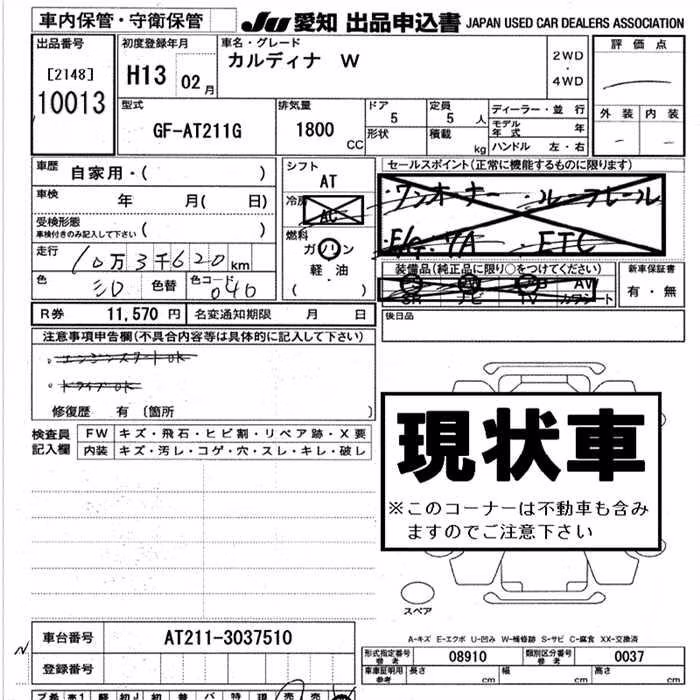 車内保管・守衛保管 JU 愛知 出品申込書 JAPAN USED CAR DEALERS ASSOCIATION
出品番号 初度登録年月 車名・グレード 評価点
[2148] H13 02月 カルディナ W 2WD・4WD
10013 型式 排気量 ドア 定員 ディーラー・並行 外装 内装
GF-AT211G 1800 CC 5 5人 モデル年式 年
形状 積載 kg ハンドル 左・右
車歴 自家用・( ) シフト セールスポイント(正常に機能するものに限ります)
車検 年 月( 日) AT ・ワンオーナー ・ルーフレール
受検形態 ( ) 冷房 AC
車検付きのみ記入して下さい 燃料 ETC
走行 10万3千620km ガソリン 装備品(純正品に限り○をつけてください) 新車保証書
色 シロ 色替 色コード 040 軽油 ・ ( ) SR ナビ TV AW カワシート 有・無
R券 11,570円 名変通知期限 月 日 後日品
注意事項申告欄(不具合内容等は具体的に記入して下さい)
。エンジンスタートOK
。ドライブOK
修復歴 有〔箇所 〕
検査員記入欄 FW キズ・飛石・ヒビ割・リペア跡・X要
内装 キズ・汚レ・コゲ・穴・スレ・キレ・破レ
現状車
※このコーナーは不動車も含み
ますのでご注意下さい
スペア
A-キズ E-エクボ U-凹み W-補修跡 S-サビ C-腐食 XX-交換済
車台番号 AT211-3037510 形式指定番号 参考 08910 類別区分番号 参考 0037
登録番号 車庫証明用 参考 長さ cm 幅 cm 高さ cm